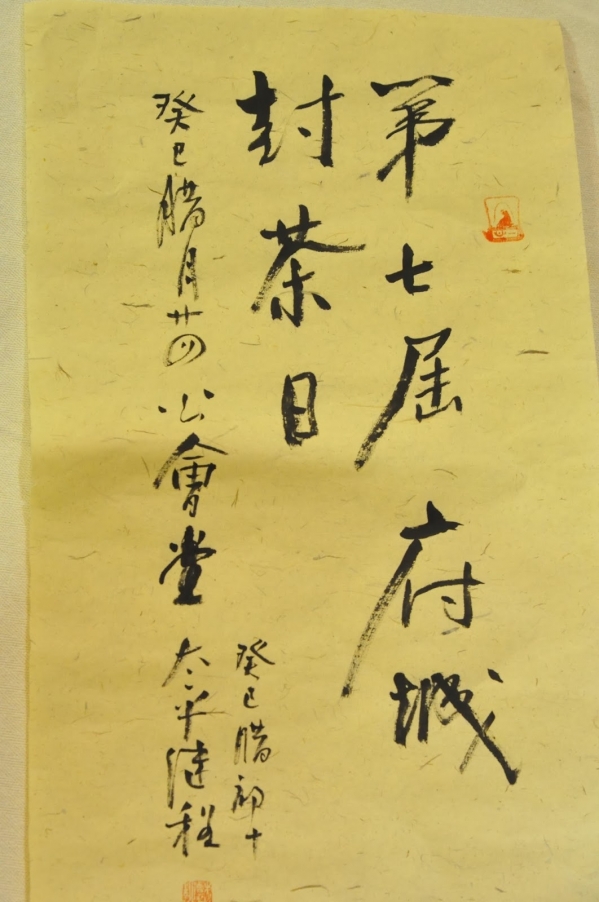 第七屆府城
封茶日
癸巳腊月廿四 公會堂
癸巳腊初十
太平继程